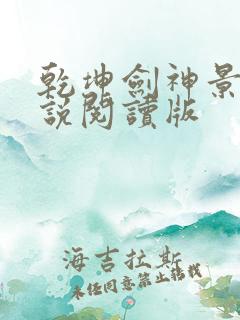 乾坤劍神景
說閱讀版
海吉拉斯
未經同意禁止轉載